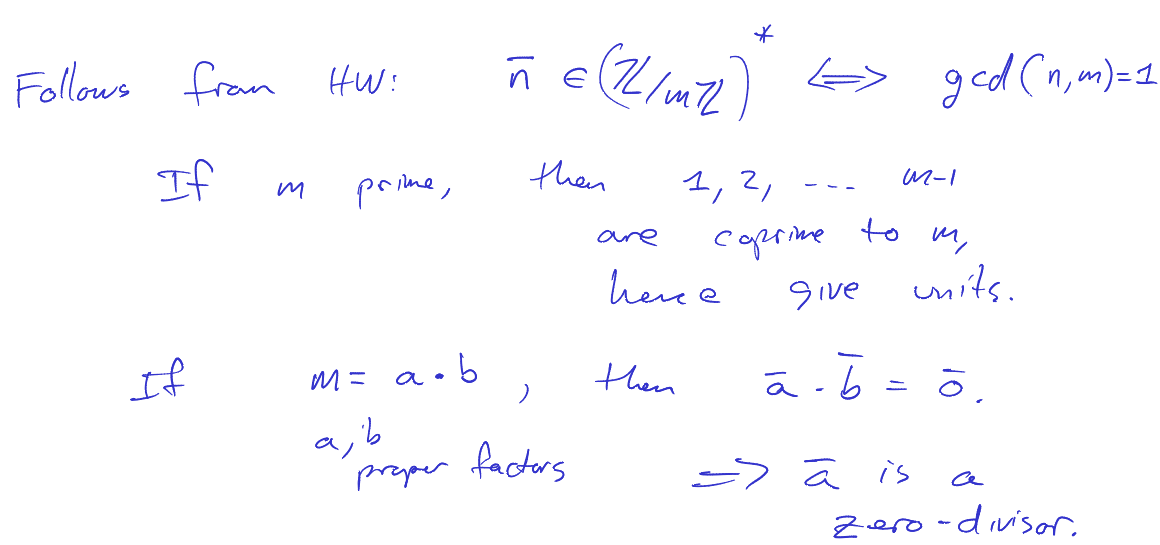 Follows from HW: n̄ ∈ (ℤ/mℤ)* ⟺ gcd(n,m)=1
If m prime, then 1, 2, --- m-1
are coprime to m,
hence give units.
If m = a · b , then ā · b̄ = ō.
a, b
proper factors ⟹ ā is a
zero-divisor.